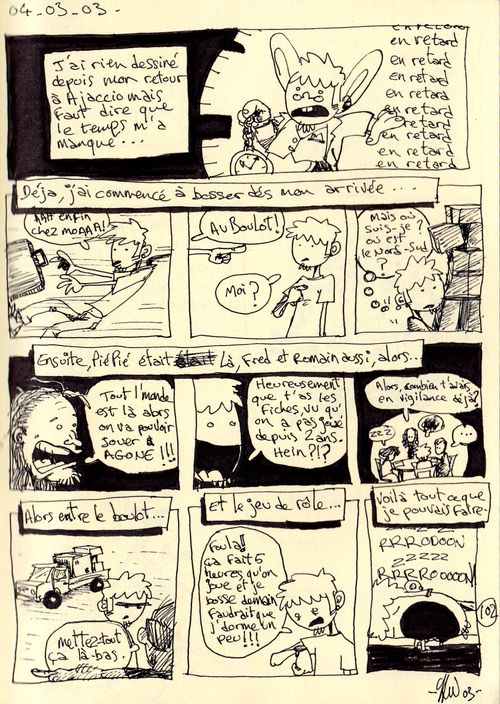 04-03-03-
J'ai rien dessiné
depuis mon retour
à Ajaccio mais
faut dire que
le temps m'a
manqué...
en retard
en retard
en retard
en retard
en retard
en retard
en retard
en retard
en retard
Déja, j'ai commencé à bosser dés mon arrivée...
AAH enfin
chez moAAA!
Au Boulot!
Moi?
Mais où
suis-je?
où est
le Nord-Sud
?
Ensuite, PiéPié était était là, Fred et Romain aussi, alors...
Tout l'monde
est là alors
on va pouvoir
jouer à
AGONE!!!
Heureusement
que t'as les
fiches, vu qu'
on a pas joué
depuis 2 ans.
Hein?!?
Alors, combien t'avais
en vigilance déjà?
ZZZ
...
Alors entre le boulot...
Mettez-tout
ça là-bas.
Et le jeu de rôle...
Foula!!
ça fait 5
heures qu'on
joue et je
bosse demain
faudrait que
j'dorme un
peu!!!
Voilà tout ce que
je pouvais faire.
RRRODOON
ZZZZZ
RRRROOOOON
102
03-